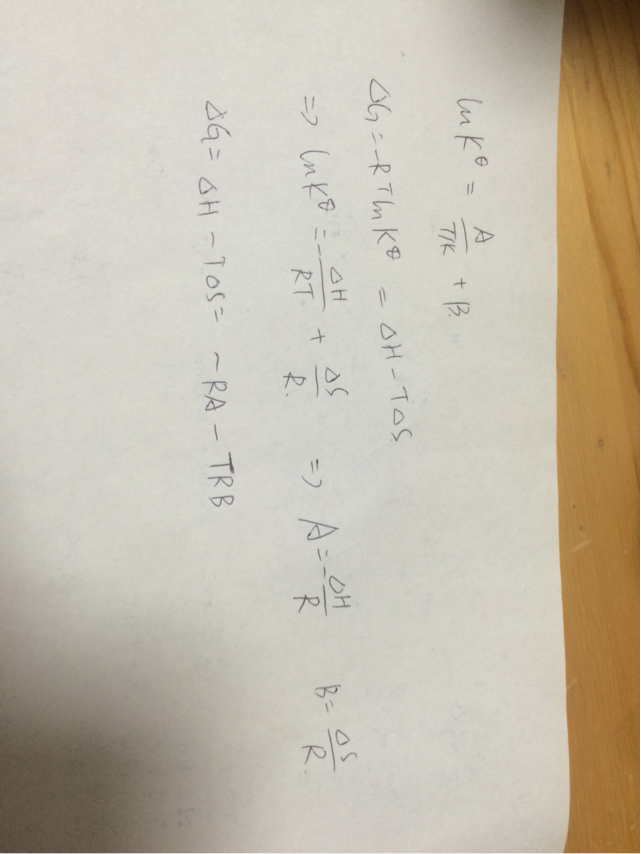 lnK^θ = A/(T/K) + B.
ΔG = -RTlnK^θ = ΔH - TΔS
=> lnK^θ = -ΔH/RT + ΔS/R. => A = -ΔH/R B = ΔS/R
ΔG = ΔH - TΔS = -RA - TRB